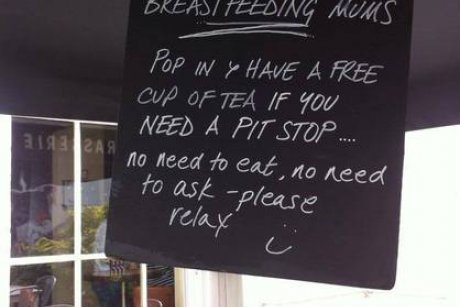 BREASTFEEDING MUMS
POP IN & HAVE A FREE
CUP OF TEA IF YOU
NEED A PIT STOP....
no need to eat, no need
to ask - please
relax
RASSERIE